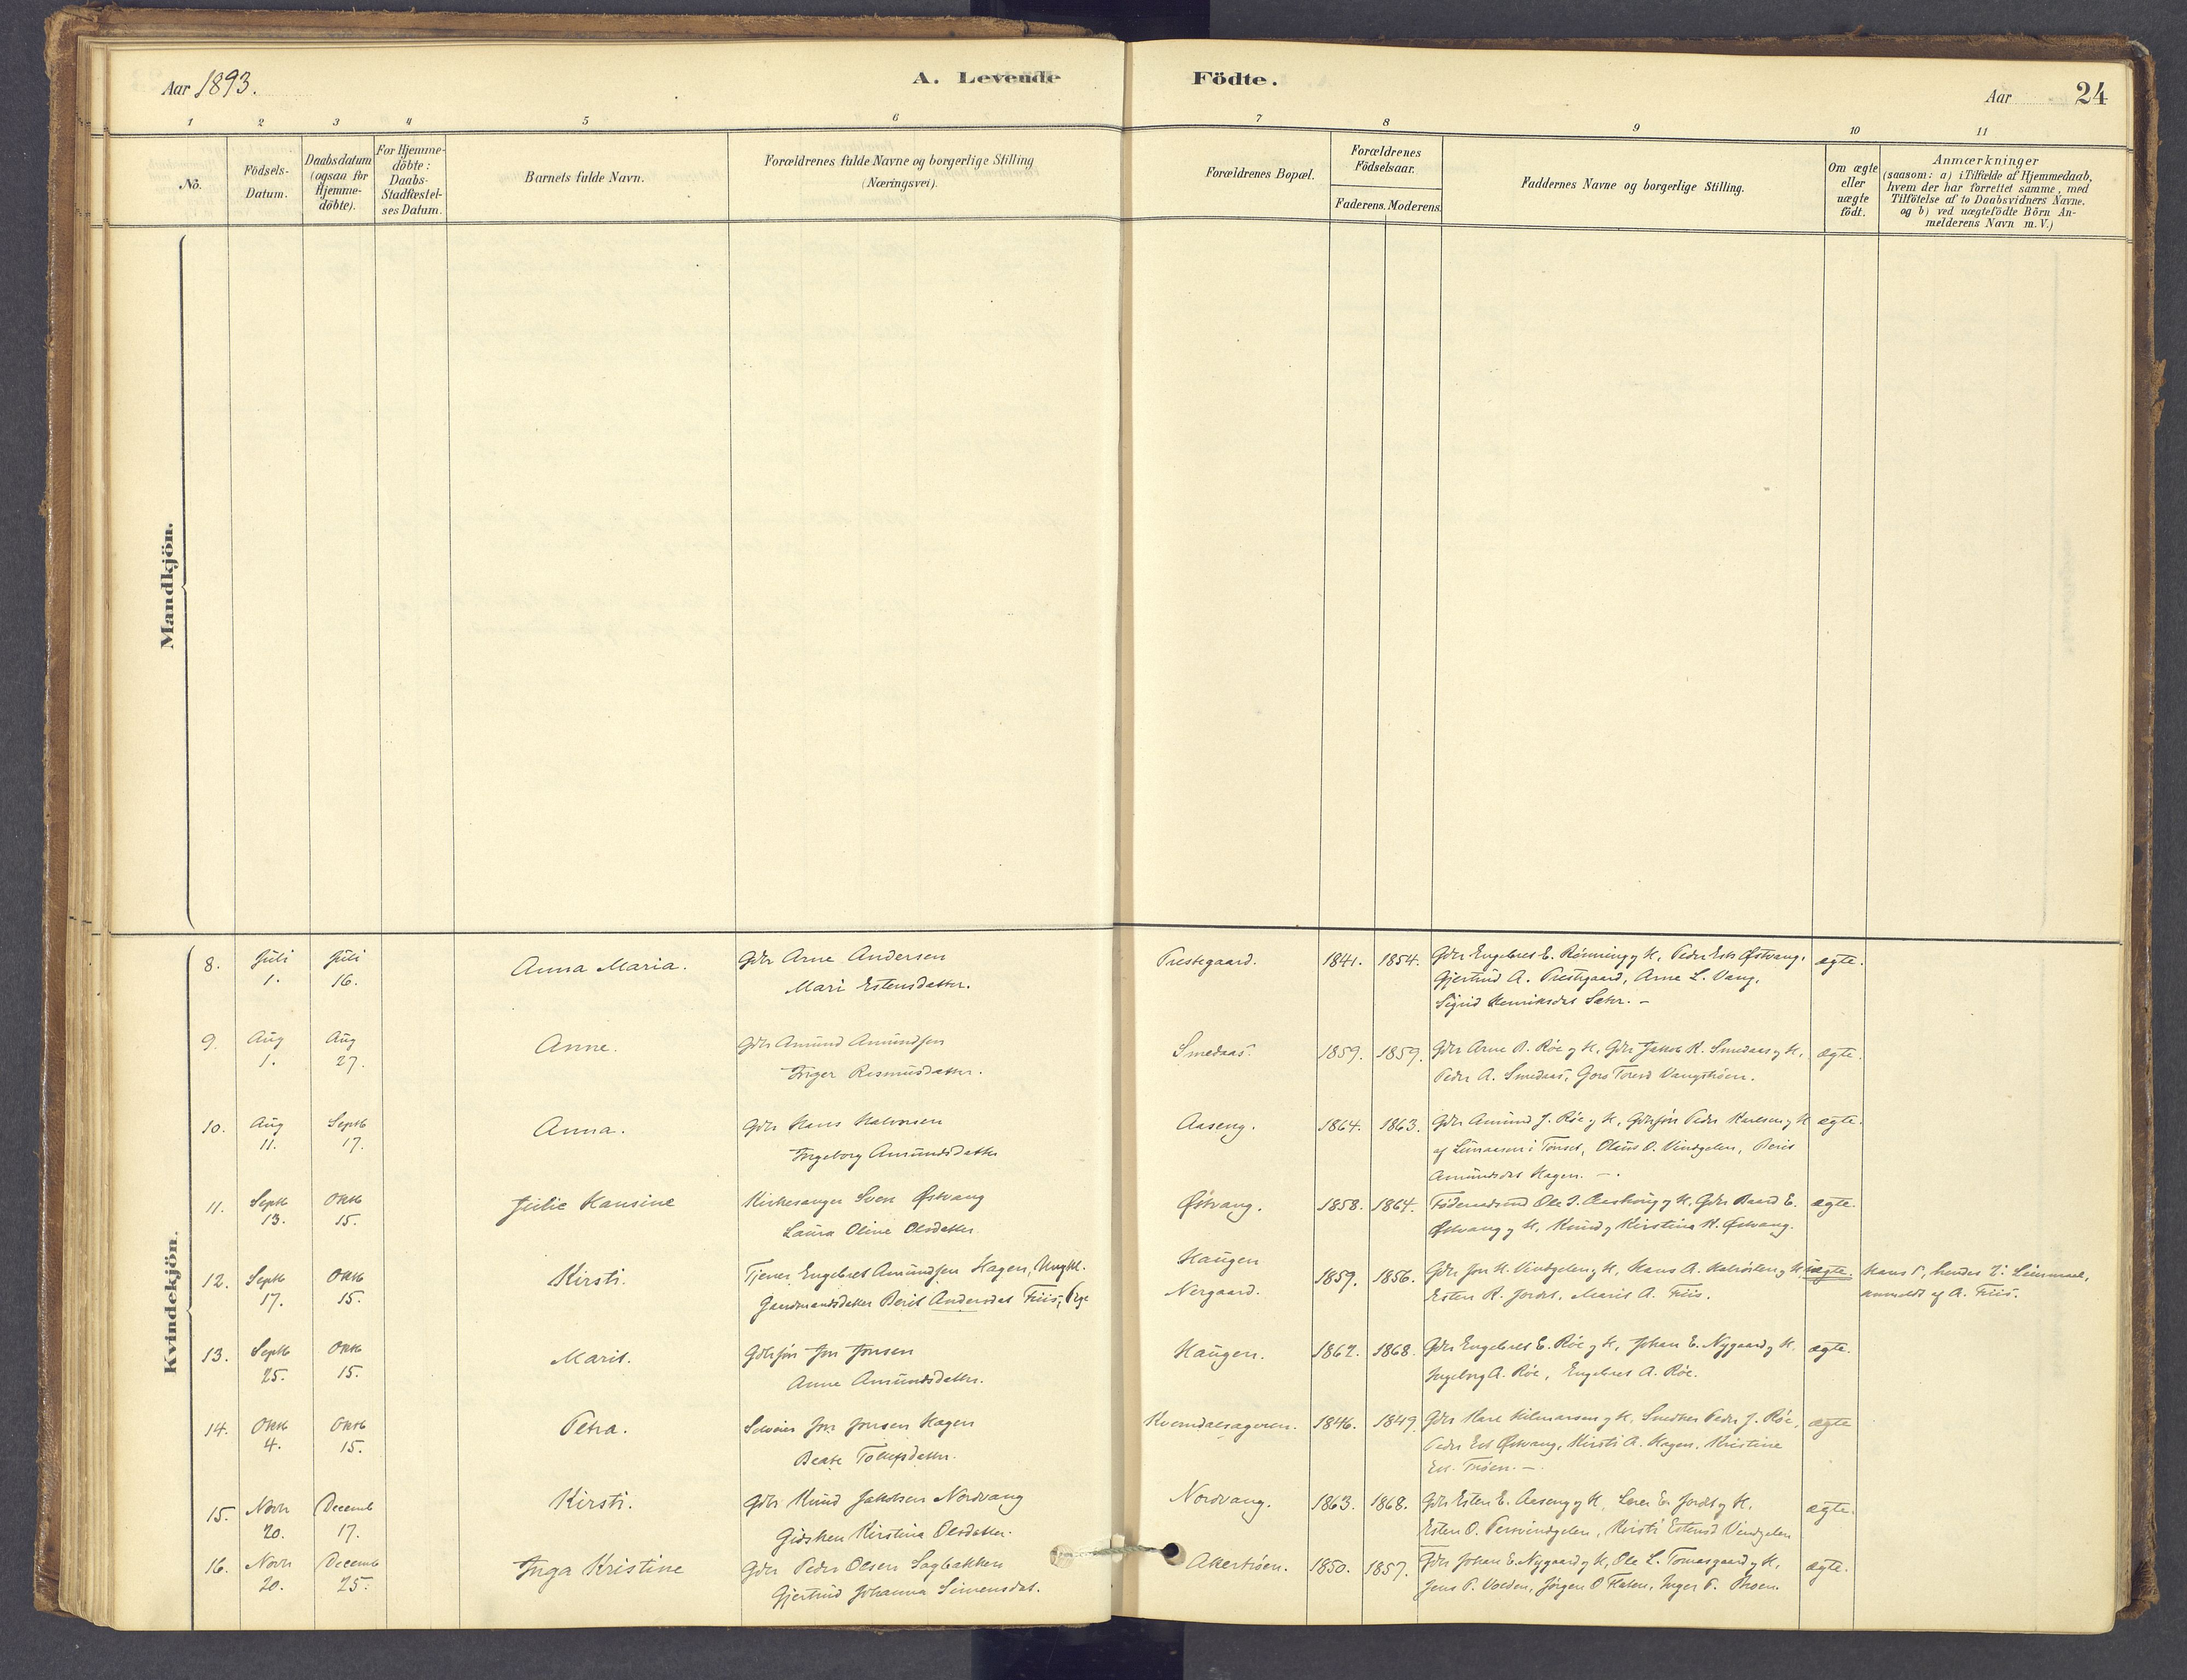 Aar 1893.
A. Levende Födte.
Aar 24
1 2 3 4 5 6 7 8 9 10 11
No.
Födsels-
Datum.
Daabsdatum
(ogsaa for
Hjemme-
döbte).
For Hjemme-
döbte:
Daabs-
Stadfæstel-
ses Datum.
Barnets fulde Navn.
Forældrenes fulde Navne og borgerlige Stilling
(Næringsvei).
Forældrenes Bopæl.
Forældrenes
Födselsaar.
Faderens. Moderens.
Faddernes Navne og borgerlige Stilling.
Om ægte
eller
uægte
födt.
Anmærkninger
(saasom: a) i Tilfælde af Hjemmedaab,
hvem der har forrettet samme, med
Tilföielse af to Daabsvidners Navne.
og b) ved uægtefödte Börn An-
melderens Navn m.V.)
Mandkjön.
Kvindekjön.
8. Juli 1. Juli 16. Anna Maria. Gdbr Arne Andersen
Mari Estensdatter.
Prestegaard. 1841. 1854. Gdbr Engebret E. Rønning og K, Peder Est. Østvang,
Gjertrud A. Prestgaard, Arne L. Vang,
Sigrid Henriksdat Sæter. –
ægte.
9. Aug 1. Aug 27. Anne. Gdbr Amund Amundsen
Inger Rasmusdatter.
Smedaas. 1859. 1859. Gdbr Arne Røe og K, Gdbr Jakob K. Smedaas og K,
Peder A. Smedaas, Goro Toresd Vangstrøen.
ægte.
10. Aug 11. Septb 17. Anna. Gdbr Hans Halvorsen
Ingeborg Amundsdatter
Aaseng. 1864. 1863. Gdbr Amund J. Røe og K, Peder Karlsen og K
af i Tønset, Olaus O. Vindgelen, Berit
Amundsdat Hagen. –
ægte.
11. Septb 13. Oktb 15. Julie Hansine Kirkesanger Svend Østvang
Laura Oline Olsdatter
Østvang. 1858. 1864. Ole og K, Gdbr Baard E.
Østvang og K, Knud og Kirstina K. Østvang.
ægte.
12. Septb 17. Oktb 15. Kirsti. Tjener Engebret Amundsen Hagen, Ungkl.
Gaardmandsdatter Berit Andersdat Fiis, Pige
Haugen
Nergaard.
1859. 1856. Gdbr Jon K. Vindgelen og K, Hans A. og K,
Esten R. Jordet, Marit A. Fiis.
uægte. Hans 1, hendes 2: Leiermaal,
anmeldt af A. Fiis.
13. Septb 25. Oktb 15. Marit. Jon Jonsen
Anne Amundsdatter.
Haugen. 1862. 1868. Gdbr Engebret E. Røe og K, Johan E. Nygaard og K,
Ingeborg A. Røe, Engebret A. Røe.
ægte.
14. Oktb 4. Oktb 15. Petra. Selveier Jon Jonsen Hagen
Beate Tollefsdatter.
1846. 1849. Gdbr Hilmarsen og K, Smedker Peder J. Røe,
Peder Est Østvang, Kirsti A. Hagen, Kristine
ægte
15. Novbr 20. Decemb 17. Kirsti. Gdbr Knud Jakobsen Nordvang
Gidsken Kirstina Olsdatter.
Nordvang. 1863. 1868. Gdbr Esten E. Aaseng og K, Jordet og K,
Esten O. Persvindgelen, Kirsti Estensd Vindgelen
ægte.
16. Novbr 20. Decemb 25. Inga Kristine Gdbr Peder Olsen Sagbakken
Gjertrud Johanna Simensdat.
Akertrøen. 1850. 1857. Gdbr Johan E. Nygaard og K, Ole L. Tomasgaard og K,
Jens P. Volden, Jørgen O Flaten, Inger P. Moen.
ægte.